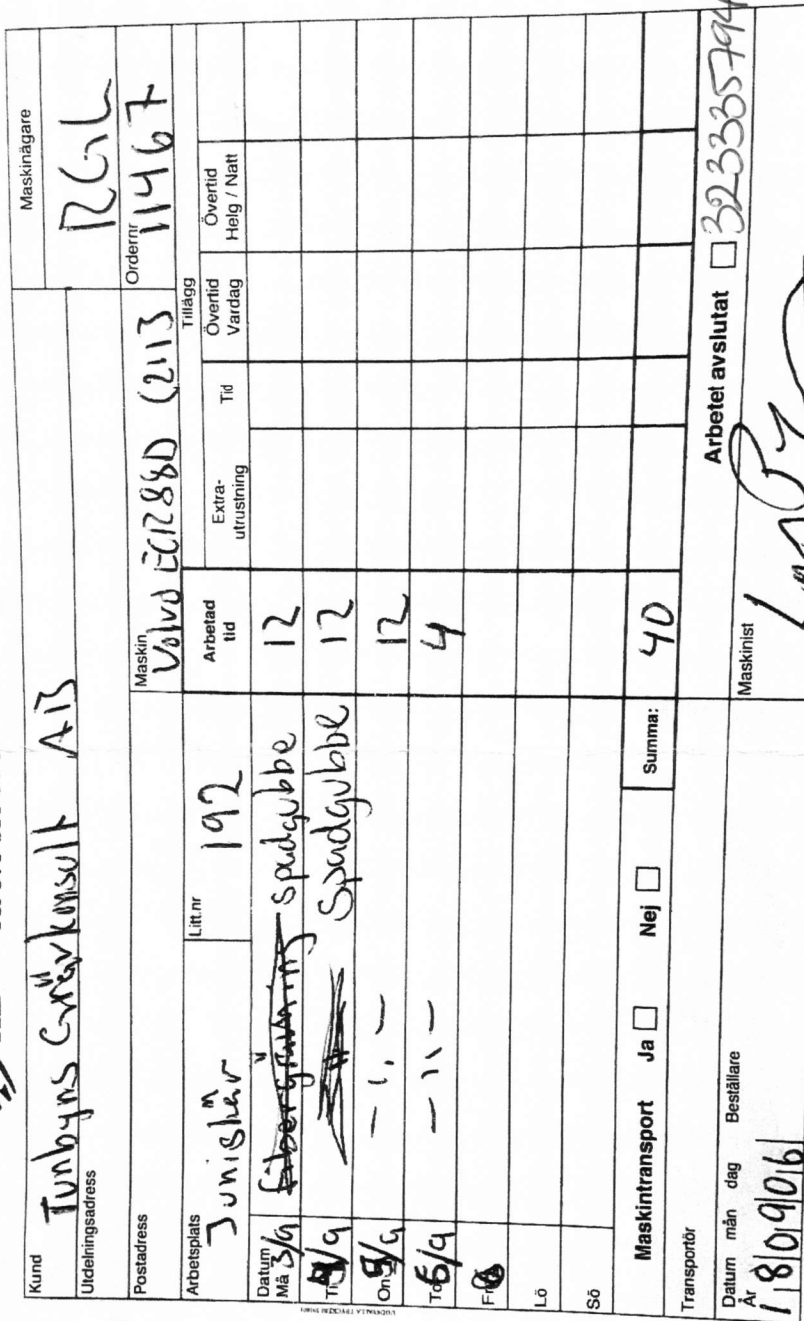 Kund Tunbyns Grävkonsult AB
Maskinägare RGL
Utdelningsadress
Postadress
Maskin Volvo ECR88D (2113
Ordernr 11467
Arbetsplats Juniskär
Litt.nr 192
Arbetad tid
Tillägg
Extra-utrustning
Tid
Övertid Vardag
Övertid Helg / Natt
Datum
Må 3/9 fibergrävning spadgubbe 12
Ti 4/9 Spadgubbe 12
On 5/9 - 11 - 12
To 6/9 - 11 - 4
Fr
Lö
Sö
Maskintransport Ja Nej Summa: 40
Transportör
Arbetet avslutat 323335794
Datum År mån dag
180906
Beställare
Maskinist